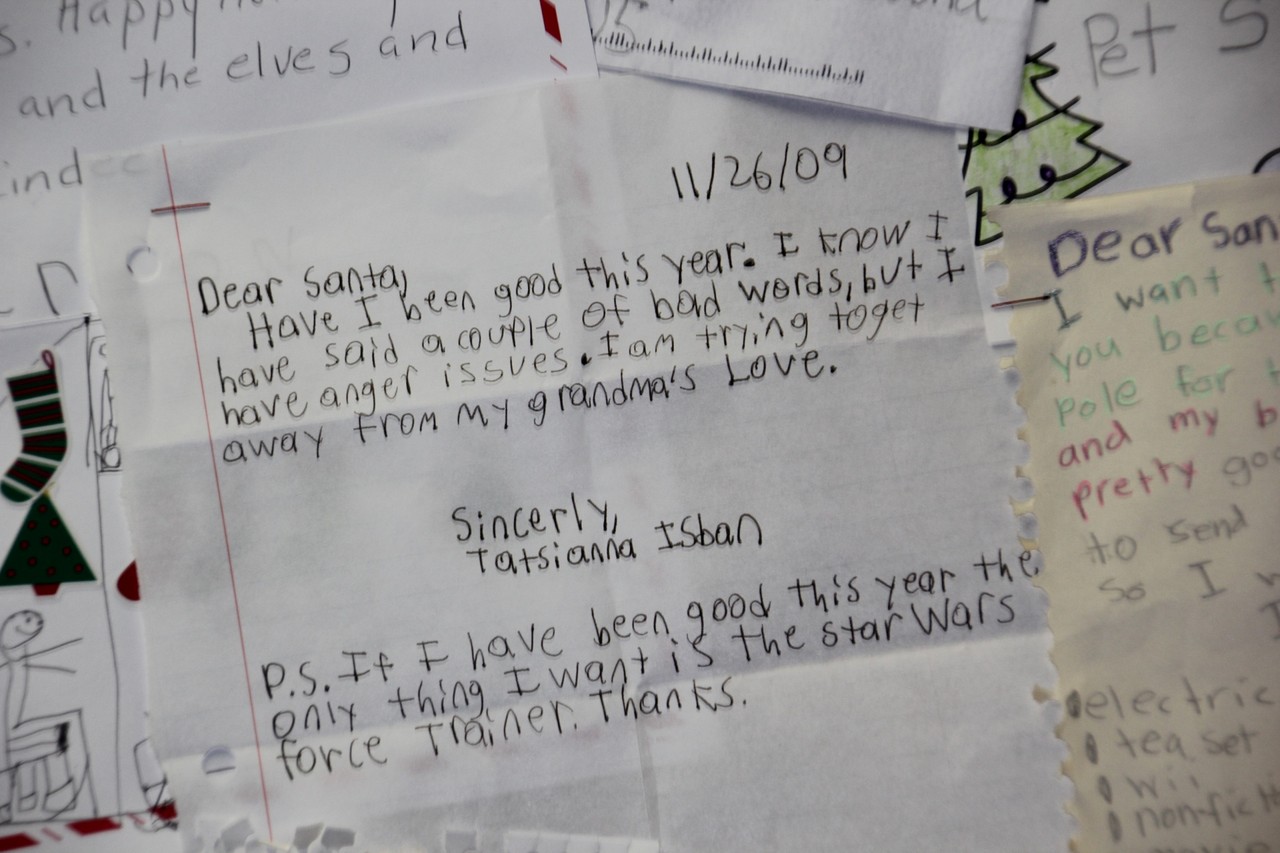 s. Happy
and the elves and
ind
Pet S
11/26/09
Dear Santa,
Have I been good this year. I know I
have said a couple of bad words, but I
have anger issues. I am trying to get
away from my grandma's Love.
Sincerly,
Tatsianna Isban
P.S. If I have been good this year the
only thing I want is the star Wars
force Trainer. Thanks.
Dear San
I want t
you becau
pole for t
and my b
pretty goo
to send
so I w
electric
tea set
wii
nonficti